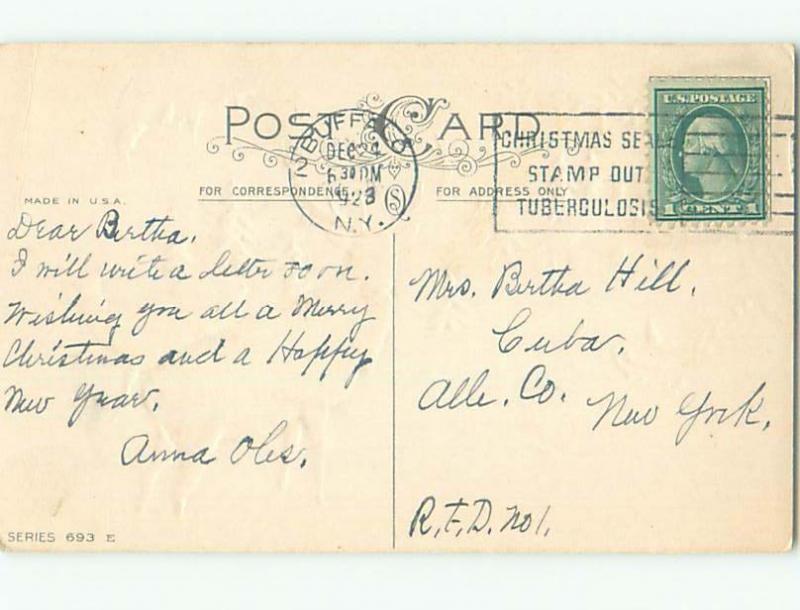 POST CARD
BUFFALO
N.Y.
DEC 24
6 30 PM
1923
2
S
CHRISTMAS SEALS
STAMP OUT
TUBERCULOSIS
U.S. POSTAGE
1 CENT 1
FOR CORRESPONDENCE
FOR ADDRESS ONLY
MADE IN U.S.A.
Dear Bertha,
I will write a letter soon.
Wishing you all a Merry
Christmas and a Happy
New Year.
Anna Oles.
Mrs. Bertha Hill,
Cuba,
Alle. Co.
New York.
R.F.D. No 1.
SERIES 693 E